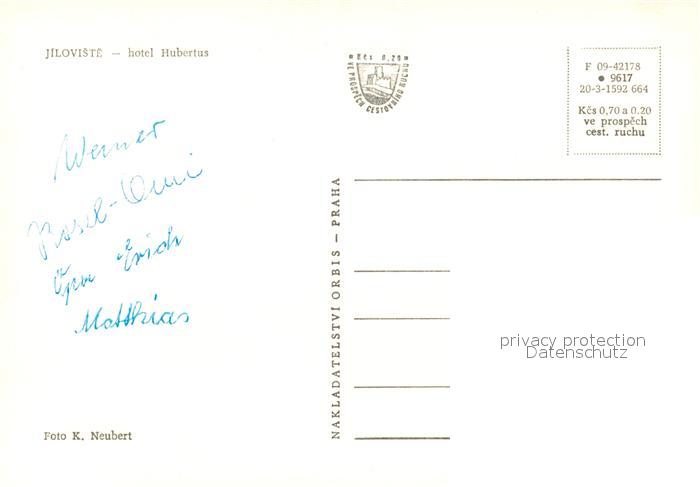 JÍLOVIŠTĚ — hotel Hubertus
Kčs 0,20
VE PROSPĚCH CESTOVNÍHO RUCHU
F 09-42178
● 9617
20-3-1592 664
Kčs 0,70 a 0.20
ve prospěch
cest. ruchu
Werner
Rosel-Omi
Opa Erich
Matthias
NAKLADATELSTVÍ ORBIS — PRAHA
privacy protection
Datenschutz
Foto K. Neubert